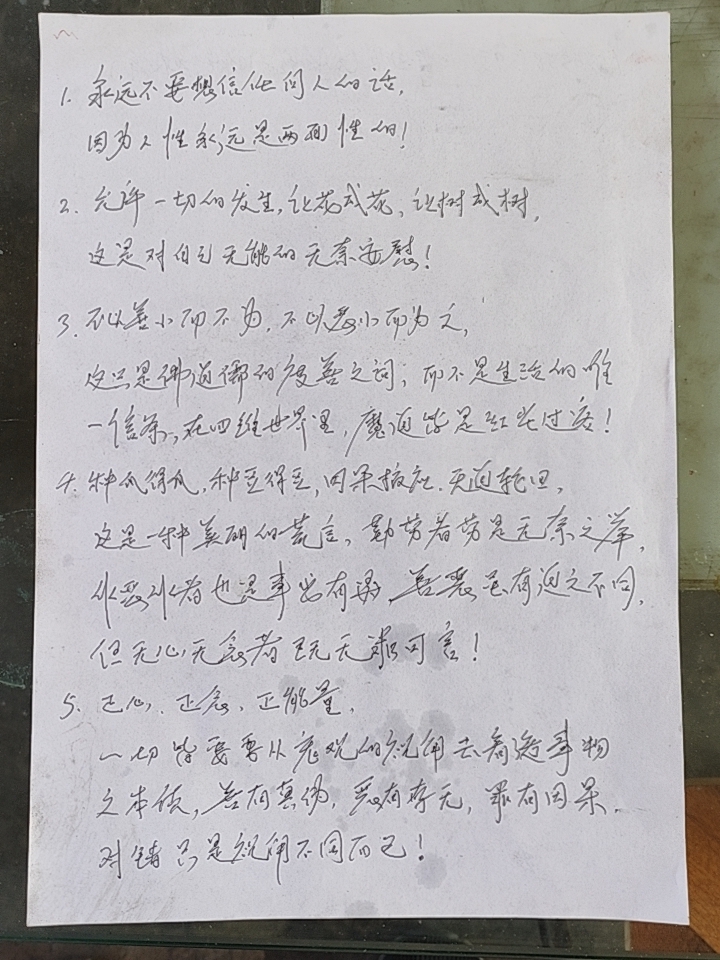 1. 永远不要想信任何人的话,
因为人性永远是两面性的!
2. 允许一切的发生,让花成花、让树成树,
这是对自己无能的无奈安慰!
3. 不以善小而不为,不以恶小而为之,
这只是佛道儒的度善之词;而不是生活的唯
一信条,在四维世界里,魔道皆是红尘过客!
4. 种瓜得瓜,种豆得豆,因果报应.天道轮回,
这是一种美丽的荒言、勤劳者劳是无奈之举,
作恶作者也是事出有因,善恶是有迫之不同,
但无心无念者既无求可言!
5. 正心、正念、正能量,
一切皆要要从客观的视角去看透事物
之本质,善有真伪,恶有存无,罪有因果.
对错只是视角不同而已!